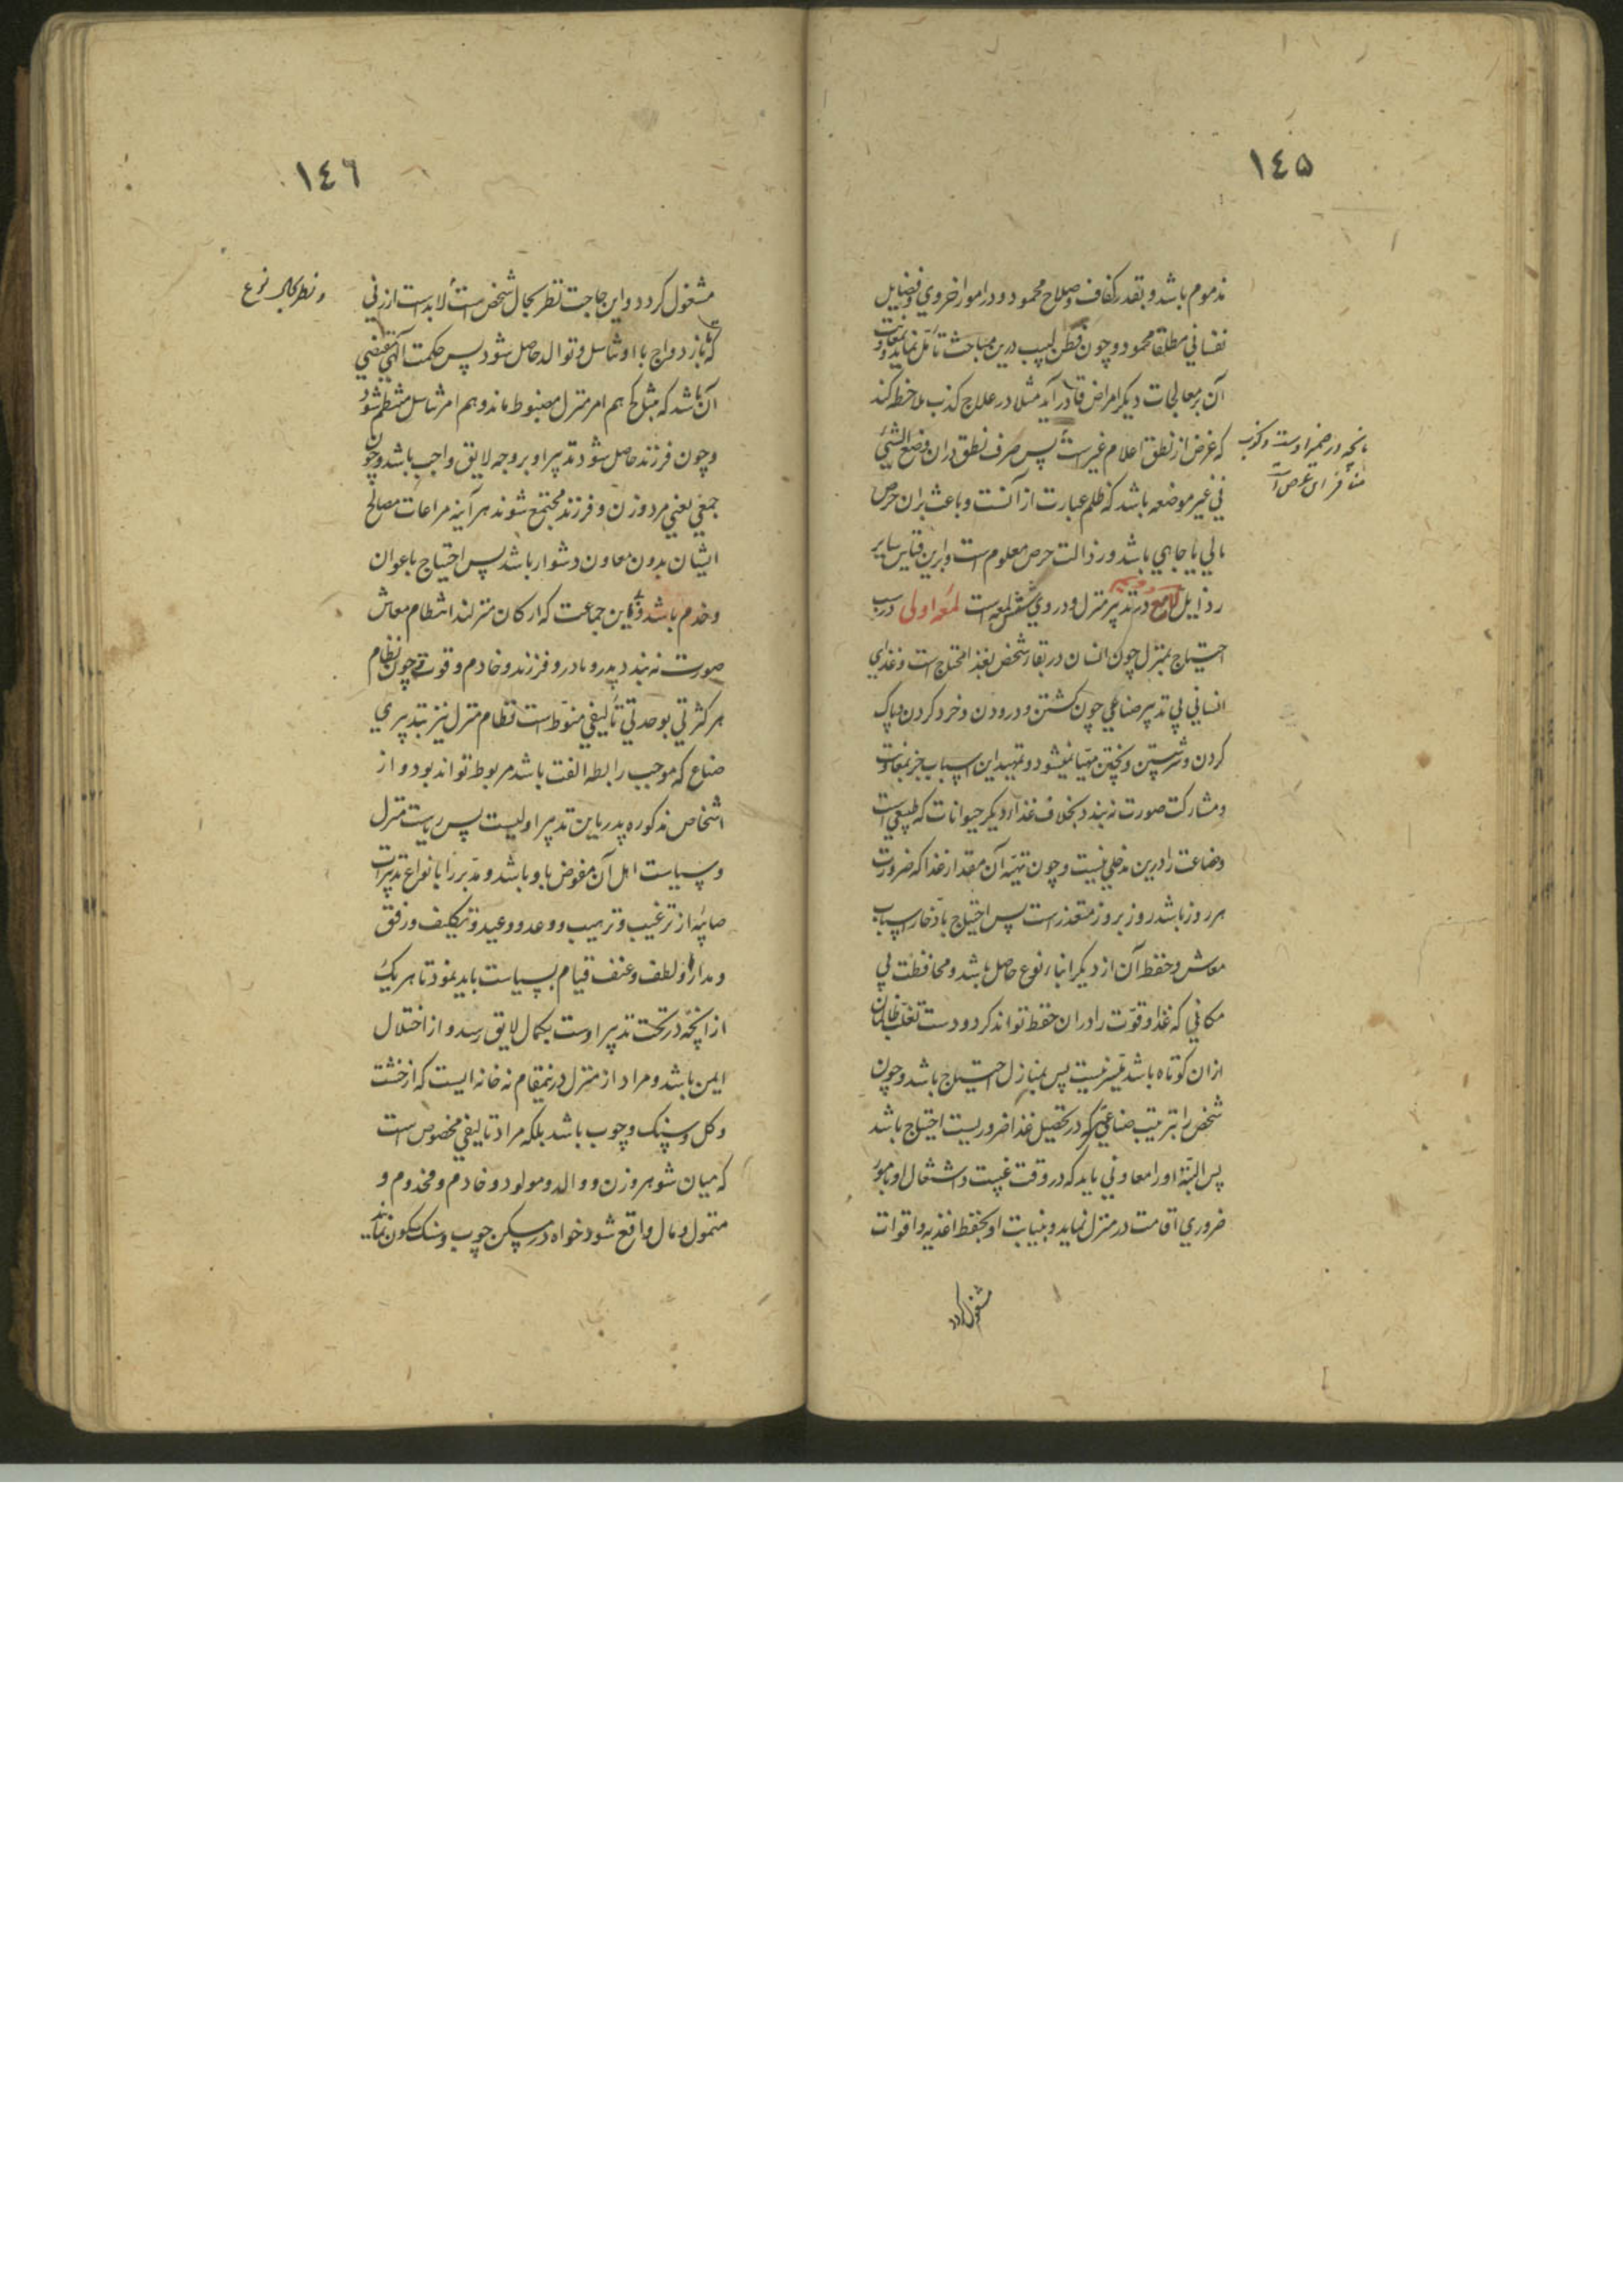 ١٤٥
مذموم باشد و بقدر کفاف و صلاح محمود و در امور اخروي و فضایل
نفساني مطلقا محمود و چون فطن لبیب درین مباحث تأمّل نماید بمعاونت
آن بر معالجات دیکر امراض قادر آید مثلا در علاج کذب ملاحظه کند
که غرض از نطق اعلام غیرست پس صرف نطق دران وضع الشئ
بانچه در ضمیر اوست و کذب
منافر این غرض است
في غیر موضعه باشد که ظلم عبارت از آنست و باعث بران حرص
مالي یا جاهي باشد و رذالت حرص معلوم است و برین قیاس سایر
رذایل لامع دویم در تدبیر منزل و درو شش لمعه است لمعه اولی در سبب
احتیاج بمنزل چون انسان در بقاء شخص بغذا محتاج است و غذاي
انساني بي تدبیر صناعي چون کشتن و درودن و خرد کردن و پاک
کردن و سرشتن و پختن مهیّا نمیشود و تمهید این اسباب جز بمعاونت
و مشارکت صورت نه بندد بخلاف غذاء دیکر حیوانات که طبیعي است
و صناعت را درین مدخلي نیست و چون تهیّه آن مقدار غذا که ضرورت
هر روز باشد روز بروز متعذرست پس احتیاج بادّخار اسباب
معاش و حفظ آن از دیکر ابناء نوع حاصل باشد و محافظت بي
مکاني که غذا و قوّت را دران حفظ تواند کرد و دست تغلّب ظالمان
ازان کوتاه باشد میّسر نیست پس بمنازل احتیاج باشد و چون
شخص را بترتیب صناعي که در تحصیل غذا ضروریست احتیاج باشد
پس البتّه او را معاوني باید که در وقت غیبت و اشتغال او بامور
ضروري اقامت در منزل نماید و بنیابت او بحفظ اغذیه و اقوات
مشغول کردد
١٤٦
مشغول کردد و این حاجت نظر بحال شخص است لابد است از زني
و نظر بحال نوع
که باز دواج با او تناسل و توالد حاصل شود پس حکمت الهي مقتضي
آن باشد که مثل کح هم امر منزل مضبوط ماند و هم امر تناسل منتظم شود
و چون فرزند حاصل شود تدبیر او بر وجه لایق واجب باشد و چون
جمعي یعني مرد و زن و فرزند مجتمع شوند هر آینه مراعات مصالح
ایشان بدون معاون دشوار باشد پس احتیاج باعوان
و خدم باشد و باین جماعت که ارکان منزلند انتظام معاش
صورت نه بندد پدر و مادر و فرزند و خادم و قوت و چون نظام
هر کثرتي بوحدتي تألیفي منوّط است نظام منزل نیز بتدبیري
صناع که موجب رابطه الفت باشد مربوط تواند بود و از
اشخاص مذکوره پدر باین تدبیر اولیست پس ریاست منزل
و سیاست اهل آن مفوض باو باشد و مدبّر را بانواع تدبیرات
صایبه از ترغیب و ترهیب و وعد و وعید و تکلیف و رفق
و مدارا و لطف و عنف قیام بسیاست باید نمود تا هر یک
از انچه در تحت تدبیر اوست بکمال لایق رسد و از اختلال
ایمن باشد و مراد از منزل درینمقام نه خانه ایست که از خشت
و کل و سنک و چوب باشد بلکه مراد تالیفي مخصوص است
که میان شوهر و زن و والد و مولود و خادم و مخدوم و
متمول و مال واقع شود خواه در مسکن چوب و سنک سکون نمایند